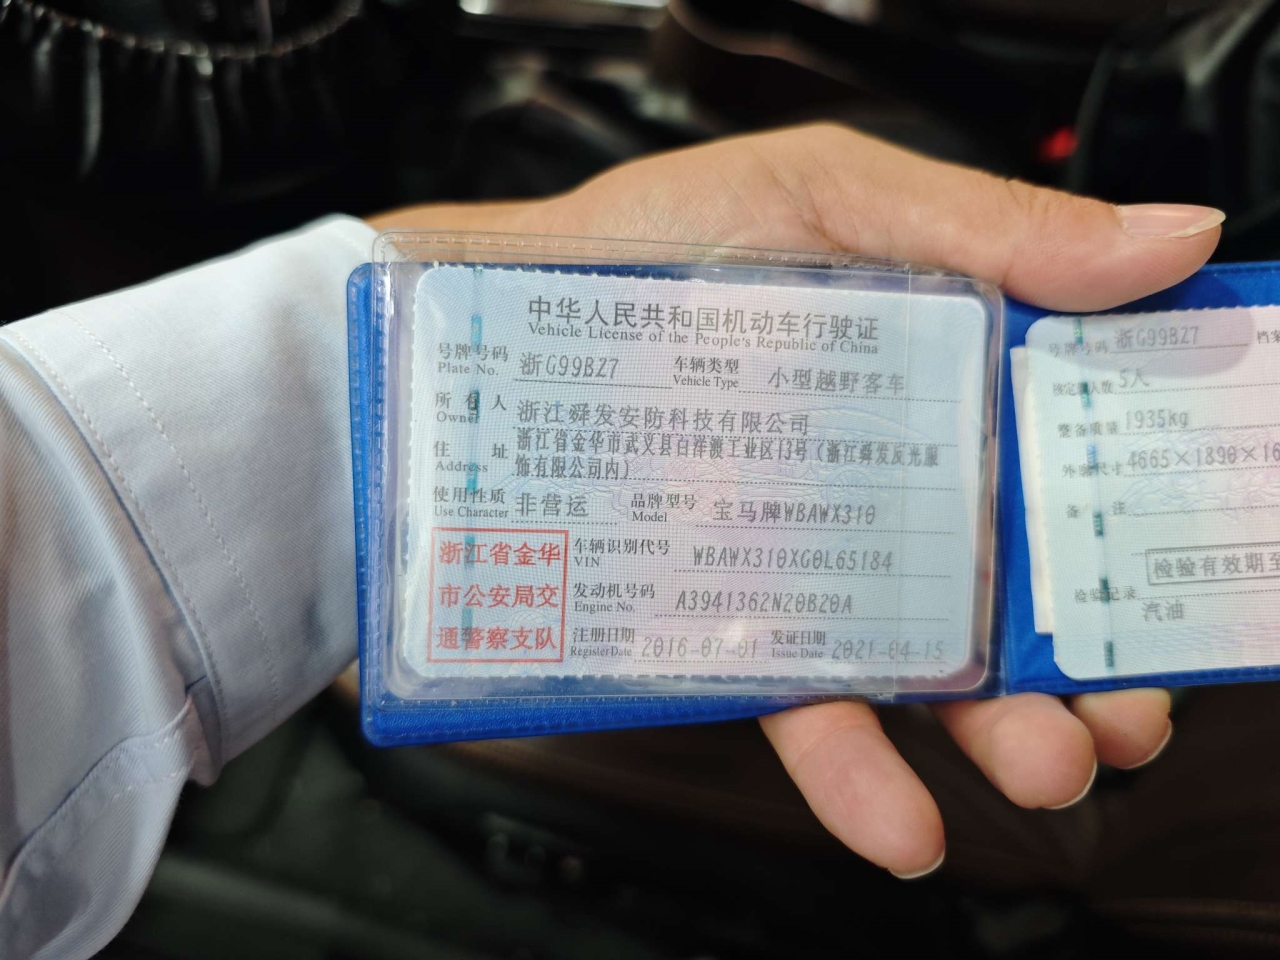 中华人民共和国机动车行驶证
Vehicle License of the People's Republic of China
号牌号码 浙G99BZ7 车辆类型 小型越野客车
Plate No. Vehicle Type
所有人 浙江舜发安防科技有限公司
Owner
住址 浙江省金华市武义县白洋渡工业区13号（浙江舜发反光服
Address 饰有限公司内）
使用性质 非营运 品牌型号 宝马牌WBAWX310
Use Character Model
浙江省金华
市公安局交
通警察支队
车辆识别代号 WBAWX310XG0L65184
VIN
发动机号码 A3941362N20B20A
Engine No.
注册日期 2016-07-01 发证日期 2021-04-15
Register Date Issue Date
号牌号码 浙G99BZ7 档案
核定载人数 5人
整备质量 1935kg
外廓尺寸 4665×1890×16
备注
检验有效期至
检验记录
汽油